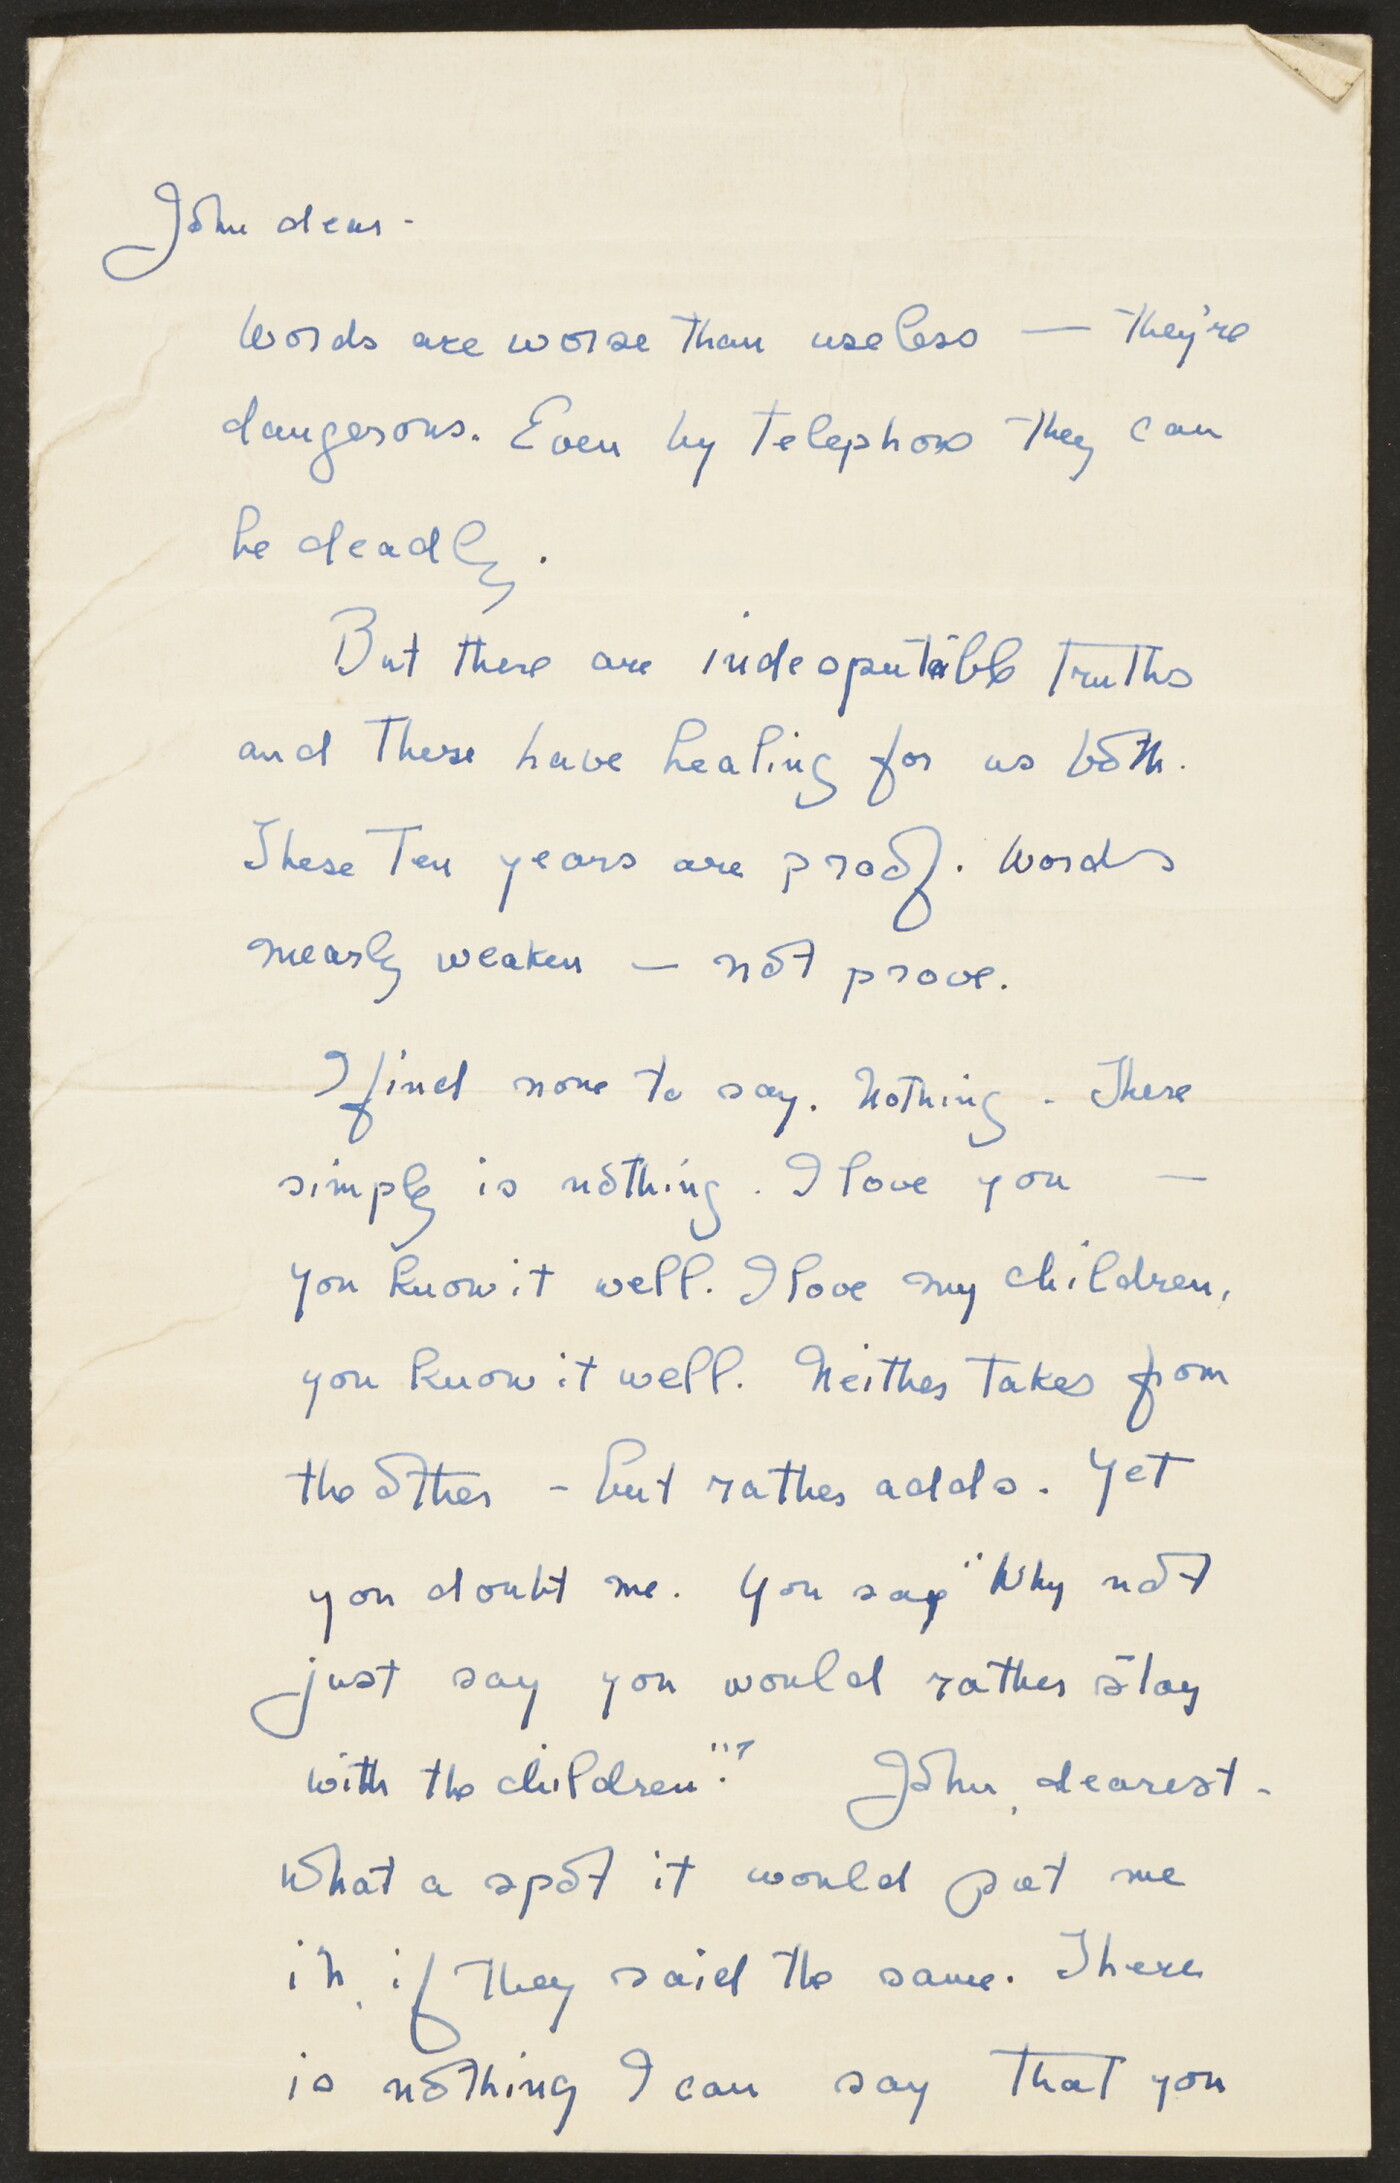 John dear -
Words are worse than useless — they're
dangerous. Even by telephone they can
be deadly.
But there are indesputable truths
and these have healing for us both.
These ten years are proof. Words
mearly weaken — not prove.
I find none to say. Nothing - There
simply is nothing. I love you —
you know it well. I love my children,
you know it well. Neither takes from
the other - but rather adds. Yet
you doubt me. You say "Why not
just say you would rather stay
with the children"? John, dearest -
What a spot it would put me
in, if they said the same. There
is nothing I can say that you